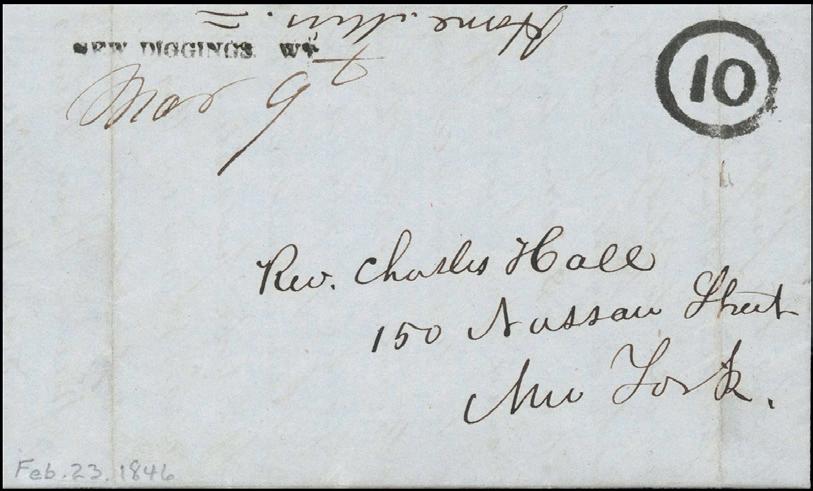 Home Miss.
NEW DIGGINGS. WT
10
Mar 9th
Rev. Charles Hall
150 Nassau Street
New York.
Feb. 23, 1846